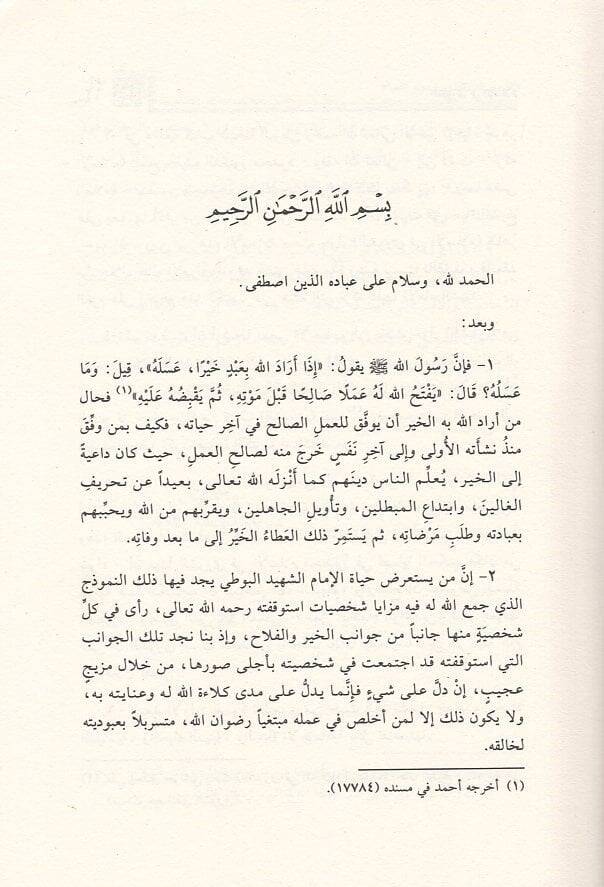 بِسْمِ اللَّهِ الرَّحْمَٰنِ الرَّحِيمِ
الحمد لله، وسلام على عباده الذين اصطفى.
وبعد:
١- فإنَّ رَسُولَ الله ﷺ يقولُ: «إِذَا أَرَادَ الله بِعَبْدٍ خَيْرًا، عَسَلَهُ»، قِيلَ: وَمَا
عَسَلُهُ؟ قَالَ: «يَفْتَحُ الله لَهُ عَمَلًا صَالِحًا قَبْلَ مَوْتِهِ، ثُمَّ يَقْبِضُهُ عَلَيْهِ»(١) فحال
من أراد الله به الخير أن يوفَّق للعمل الصالح في آخِر حياته، فكيف بمن وفِّقَ
منذُ نشأته الأُولى وإلى آخرِ نَفَسٍ خَرجَ منه لصالحِ العملِ، حيث كان داعيةً
إلى الخير، يُعلِّم الناس دينَهم كما أَنْزلَه الله تعالى، بعيداً عن تحريفِ
الغالينَ، وابتداعِ المبطلين، وتأويلِ الجاهلين، ويقربِّهم من الله ويحبِّبهم
بعبادته وطلَبِ مَرْضاتِه، ثم يَستَمِرّ ذلك العَطاءُ الخَيِّرُ إلى ما بعد وفاتِه.
٢- إنَّ من يستعرض حياة الإمام الشهيد البوطي يجد فيها ذلك النموذج
الذي جمع الله له فيه مزايا شخصيات استوقفته رحمه الله تعالى، رأى في كلِّ
شخصيَّةٍ منها جانباً من جوانب الخير والفلاح، وإذ بنا نجد تلك الجوانب
التي استوقفته قد اجتمعت في شخصيته بأجلى صورها، من خلال مزيجٍ
عجيبٍ، إنْ دلَّ على شيءٍ فإنَّما يدلُّ على مدى كلاءة الله له وعنايته به،
ولا يكون ذلك إلا لمن أخلص في عمله مبتغياً رضوان الله، متسربلاً بعبوديته
لخالقه.
(١) أخرجه أحمد في مسنده (١٧٧٨٤).